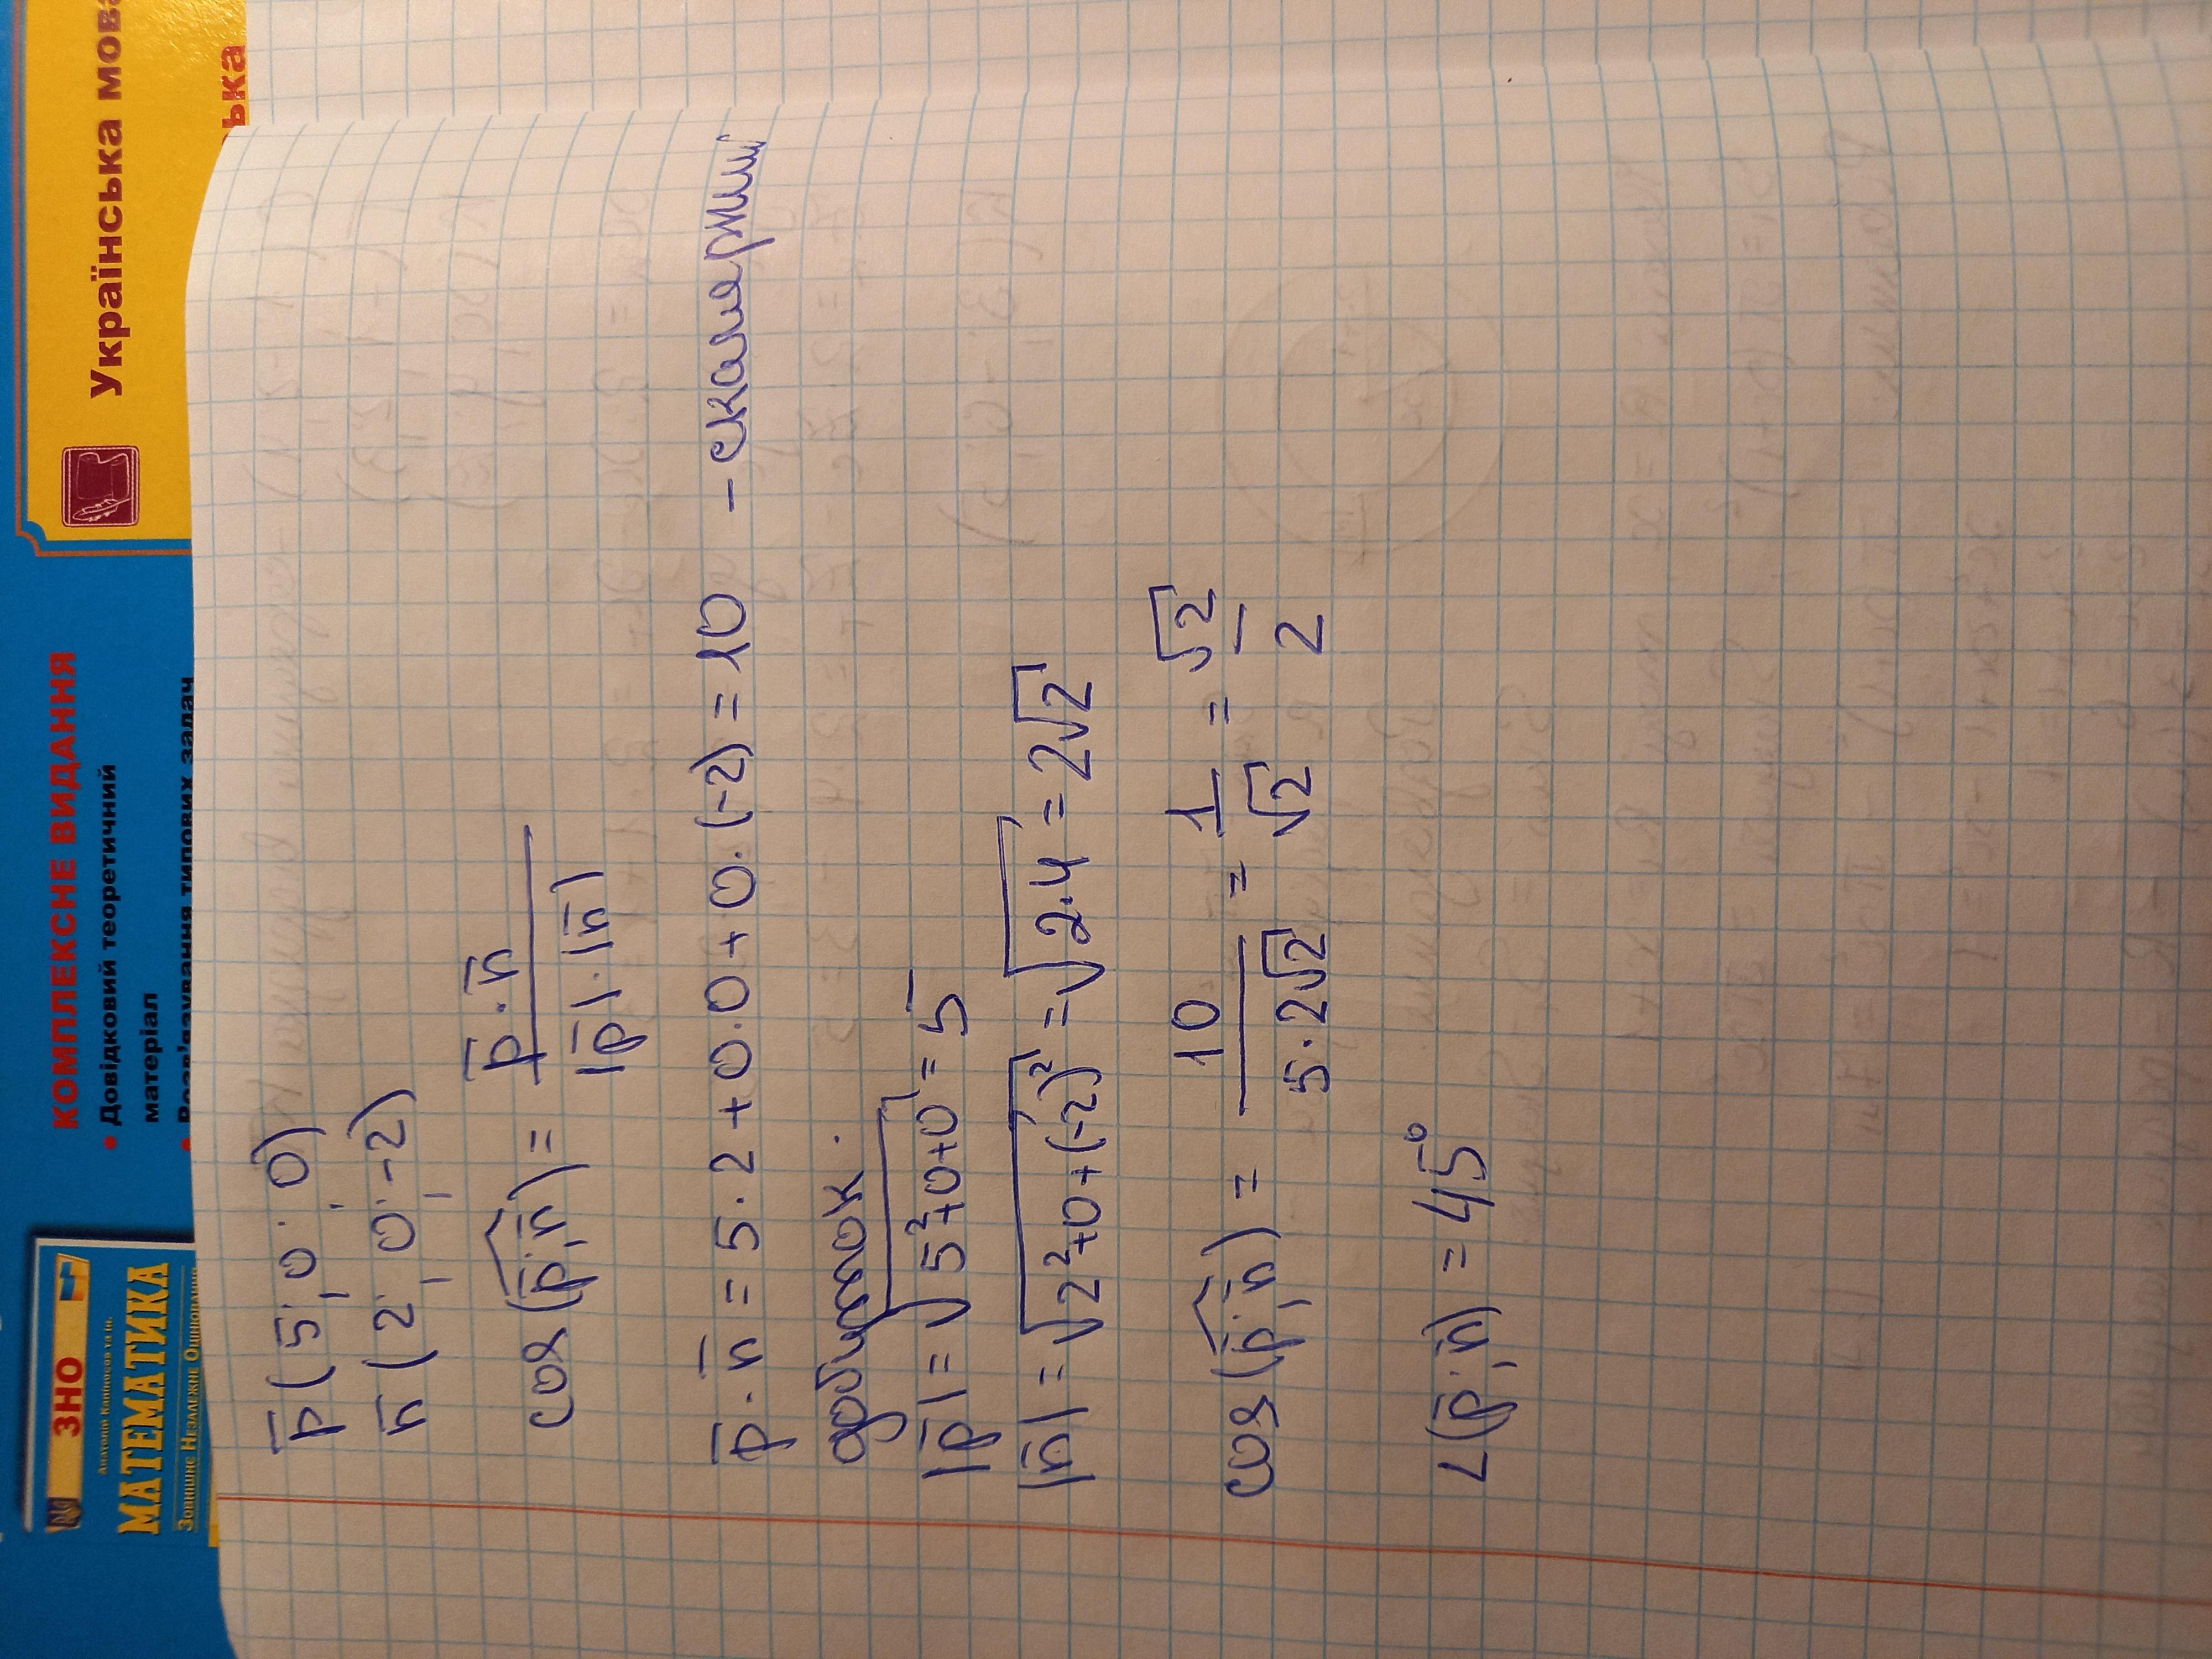 ЗНО
Анатолій Капіносов та ін.
МАТЕМАТИКА
Зовнішнє Незалежне Оцінювання
КОМПЛЕКСНЕ ВИДАННЯ
• Довідковий теоретичний
матеріал
• Розв'язування типових задач
Українська мова
ька
p̅(5; 0; 0)
n̅(2; 0; -2)
cos(p̅; n̅) = p̅·n̅ / |p̅|·|n̅|
p̅·n̅ = 5·2+0·0+0·(-2) = 10 - скалярний
добуток.
|p̅| = √5²+0+0 = 5
|n̅| = √2²+0+(-2)² = √2·4 = 2√2
cos(p̅; n̅) = 10 / 5·2√2 = 1 / √2 = √2 / 2
∠(p̅; n̅) = 45°